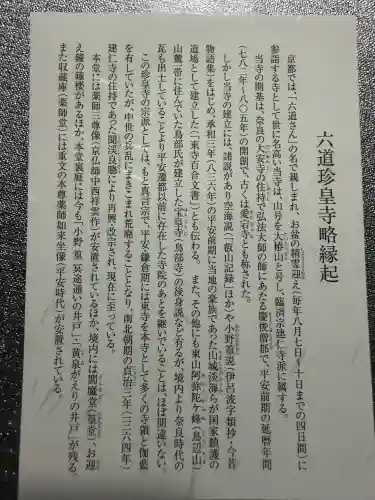 六道珍皇寺略縁起
京都では、「六道さん」の名で親しまれ、お盆の精霊迎え(毎年八月七日～十日までの四日間)に
参詣する寺として世に名高い当寺は、山号を大椿山と号し、臨済宗建仁寺派に属する。
当寺の開基は、奈良の大安寺の住持で弘法大師の師にあたる慶俊僧都で、平安前期の延暦年間
(七八二年～八〇五年)の開創で、古くは愛宕寺とも称された。
しかし当寺の建立には、諸説があり空海説(「叡山記録」ほか)や小野篁説(伊呂波字類抄・今昔
物語集)をはじめ、承和三年(八三六年)の平安前期に当地の豪族であった山城淡海らが国家鎮護の
道場として建立した(「東寺百合文書」)とも伝わる。また、その他にも東山阿弥陀ヶ峰(鳥辺山)
山麓一帯に住んでいた鳥部氏が建立した宝皇寺(鳥部寺)の後身説など有るが、境内より奈良時代の
瓦も出土していることより平安遷都以前に存在した寺院のあとを継いでいることは、ほぼ間違いない。
この珍皇寺の宗派としては、もと真言宗で、平安・鎌倉期には東寺を本寺として多くの寺領と伽藍
を有していたが、中世の兵乱にまきこまれ荒廃することとなり、南北朝期の貞治三年(一三六四年)
建仁寺の住持であった聞渓良聰により再興・改宗され現在に至っている。
本堂には薬師三尊像(京仏師中西祥雲作)が安置されているほか、境内には閻魔堂(篁堂)、お迎
え鐘の鐘楼があるほか、本堂裏庭には今も「小野篁冥途通いの井戸」・「黄泉がえりの井戸」が残る。
また収蔵庫(薬師堂)には重文の本尊薬師如来坐像(平安時代)が安置されている。